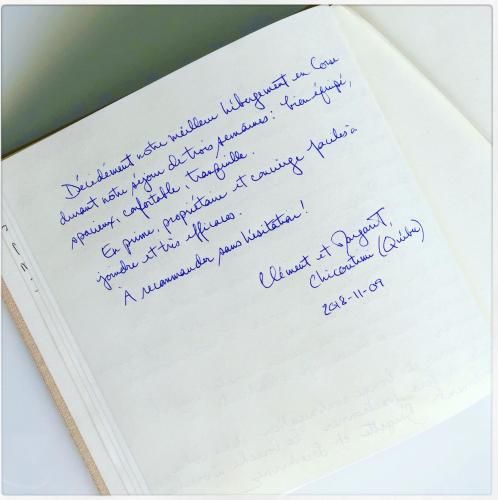 Décidément notre meilleur hébergement en Corse
durant notre séjour de trois semaines : bien équipé,
spacieux, confortable, tranquille.
En prime, propriétaire et concierge faciles à
joindre et très efficaces.
À recommander sans hésitation !
Clément et
Chicoutimi (Québec)
2018-11-09